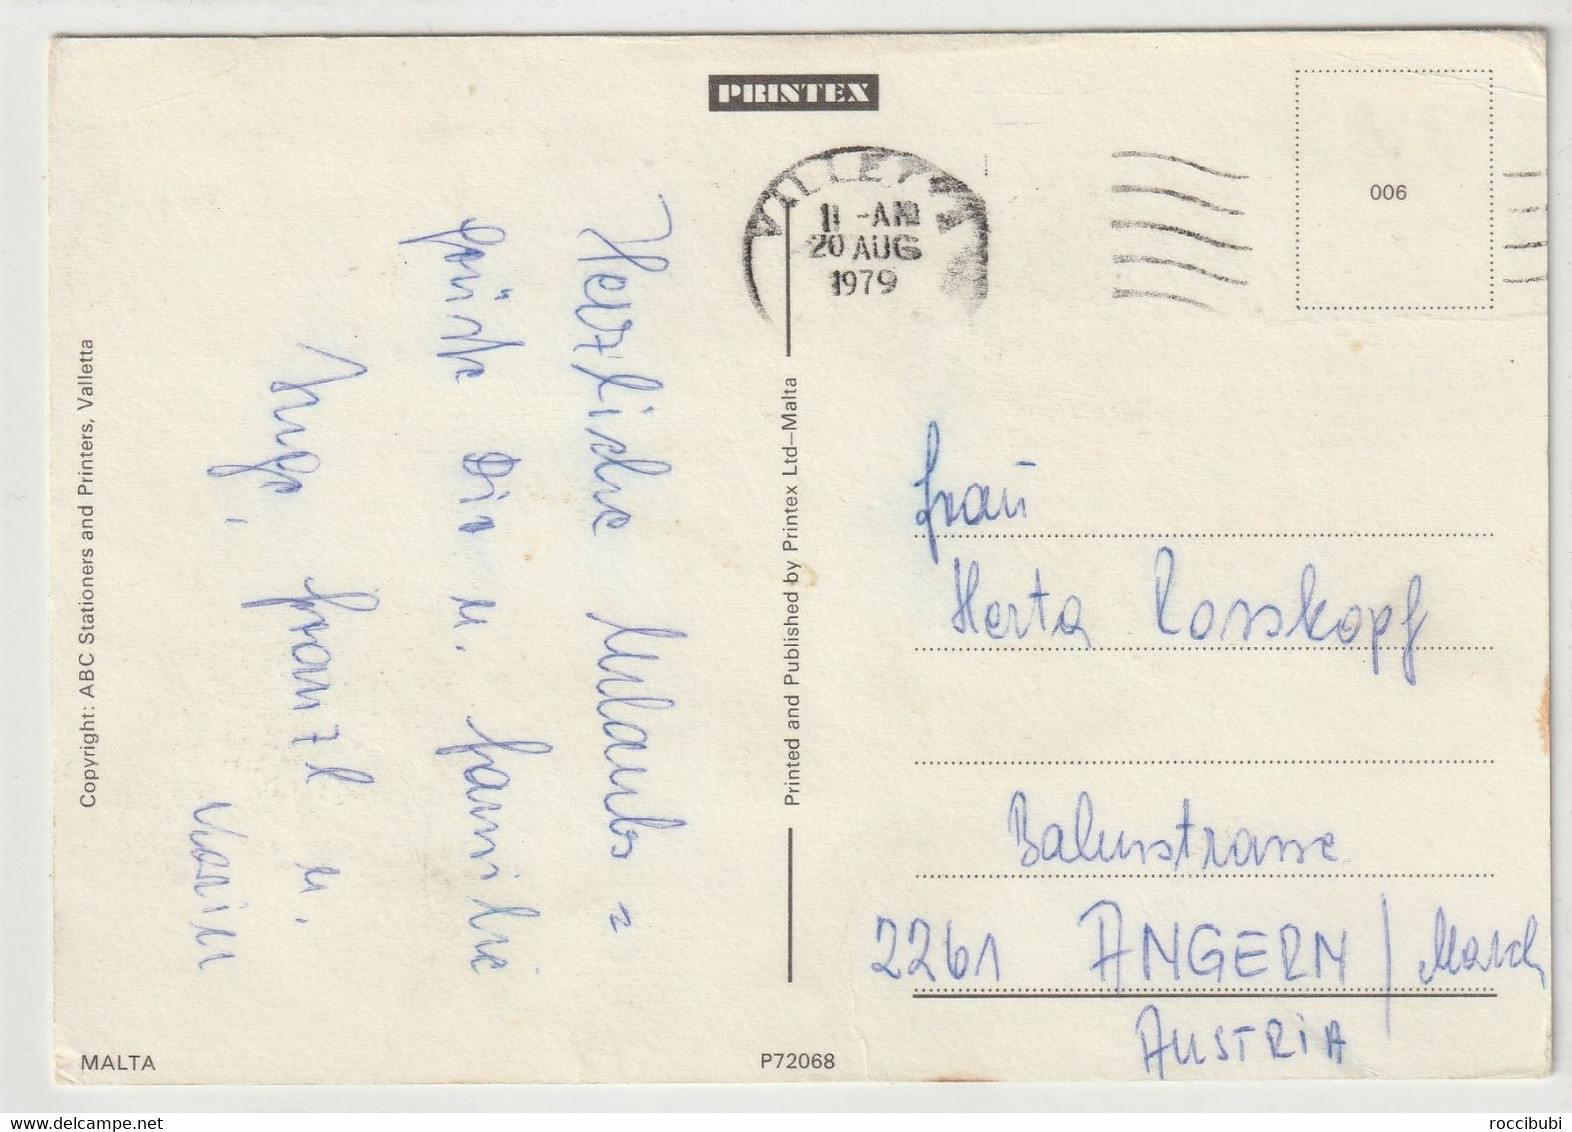 PRINTEX
VALLETTA
11 -AM
20 AUG
1979
006
Copyright: ABC Stationers and Printers, Valletta
Herzliche Urlaubs=
grüße Dir u. Familie
Inge, Franzl u.
Karin
Printed and Published by Printex Ltd–Malta
Frau
Herta Rosskopf
Bahnstrasse
2261 ANGERN / March
AUSTRIA
MALTA
P72068
roccibubi